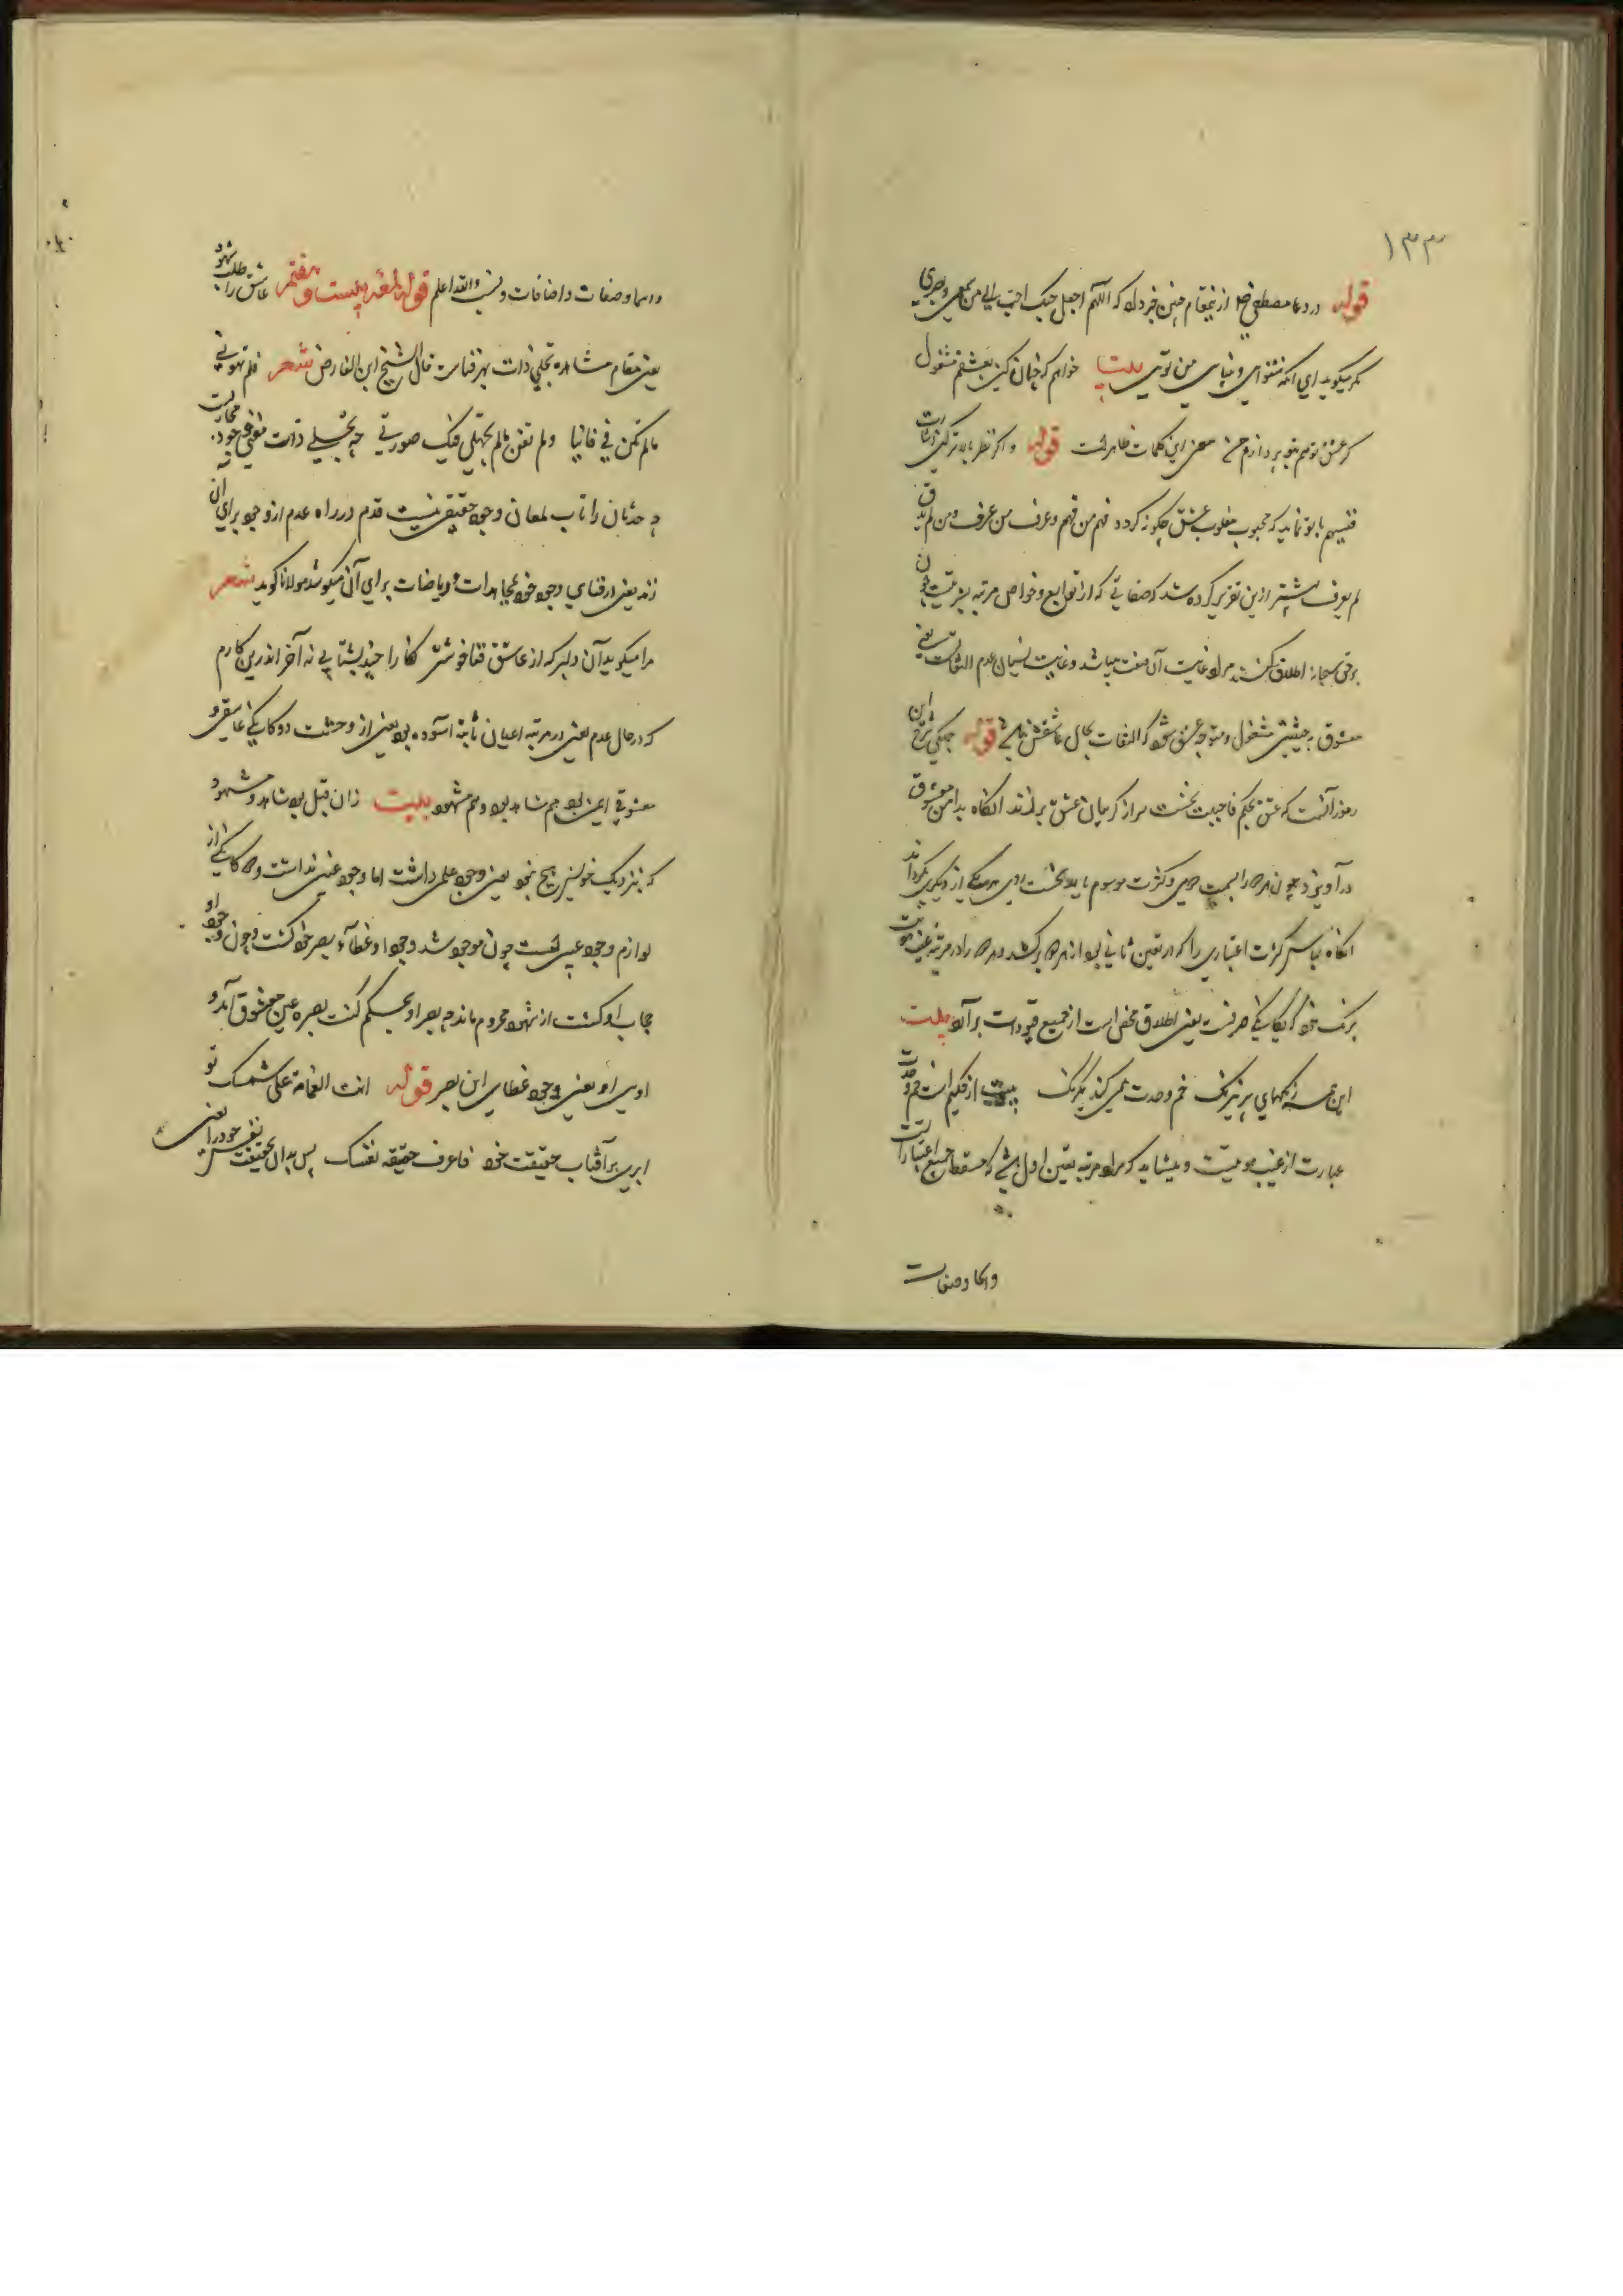 ۱۳۳
قوله در دعا مصطفی صلعم ازین مقام چنین خبر داد که اللهم اجعل حبک احب الی من سمعی وبصری
مگر میگوید ای آنکه شنوایی و بینایی من تویی بیت خواهم که چنان کنی بعشقم مشغول
کز عشق تو هم بتو نپردازم من معنی این کلمات ظاهرست قوله و اگر نظر بلندتر کنی اشارت
فنسیهم با تو نماید که محبوب مغلوب عشق چگونه گردد فهم من فهم وعرف من عرف ومن لم یذق
لم یعرف پیشتر ازین تقریر کرده شد که صفاتی که از توابع وخواص مرتبه بشریت چون
برحق سبحانه اطلاق کنند مراد غایت آن صفت میباشد وغایت نسیان عدم التفاتست یعنی
معشوق بحیثیتی مشغول ومتوجه عشق شود که التفات بحال عاشقش نماند قوله جملگی شرح این
رموز آنست که عشق بحکم فاحببت نخست سر از گریبان عاشق برزند آنگاه بدامن معشوق
درآویزد چون هر دو را بسمت دویی وکثرت موسوم یابد نخست روی هر یکی از دیگری بگرداند
آنگاه لباس کثرت اعتباری را که در تعین ثانی بود از هر دو برکشد وهر دو را در مرتبه غیب هویت
برنگ خود که یگانگی صرفست یعنی اطلاق محض است از جمیع قیودات برآرد بیت
این همه رنگهای پر نیرنگ خم وحدت همی کند یکرنگ بیت از قلیم است خم وحدت
عبارت از غیب هویت و میشاید که مراد مرتبه تعین اول باشد که مسقط جمیع اعتباراتست
واسما وصفات
واسما وصفات واضافات ونسب والله اعلم قوله لمعه بیست وهفتم عاشق را طلب شهود
یعنی مقام مشاهده تجلی ذات بهر فناست قال الشیخ ابن الفارض شعر فلم تهونی
مالم تکن فی فانیا ولم تفن مالم تجتلی فیک صورتی چه تجلی ذات مفنی وجود مجازیست
و حدثان را تاب لمعان وجود حقیقی نیست قدم در راه عدم از وجود برای آن
زند یعنی در فنای وجود خود بمجاهدات وریاضات برای آن میکوشد مولانا گوید شعر
مرا میگوید آن دلبر که از عاشق فنا خوشتر نگارا چند بشتابی نه آخر اندرین کارم
که در حال عدم یعنی در مرتبه اعیان ثابته آسوده بود یعنی از وحشت دوگانگی عاشقی و
معشوقی ایمن بود هم شاهد بود وهم مشهود بیت زان قبل بود شاهد ومشهود
که بنزدیک خویش هیچ نبود یعنی وجود علمی داشت اما وجود عینی نداشت ودوگانگی از
لوازم وجود عینیست چون موجود شد وجود او غطاء بصر خود گشت وچون وجود او
حجاب او گشت از شهود محروم ماند چه بصر او بحکم کنت بصره عین معشوق آمد و
اوی او یعنی وجود غطای این بصر قوله انت الغمامة علی شمسک تو
ابری برآفتاب حقیقت خود فاعرف حقیقة نفسک پس بدان بحقیقت نفس خود را یعنی